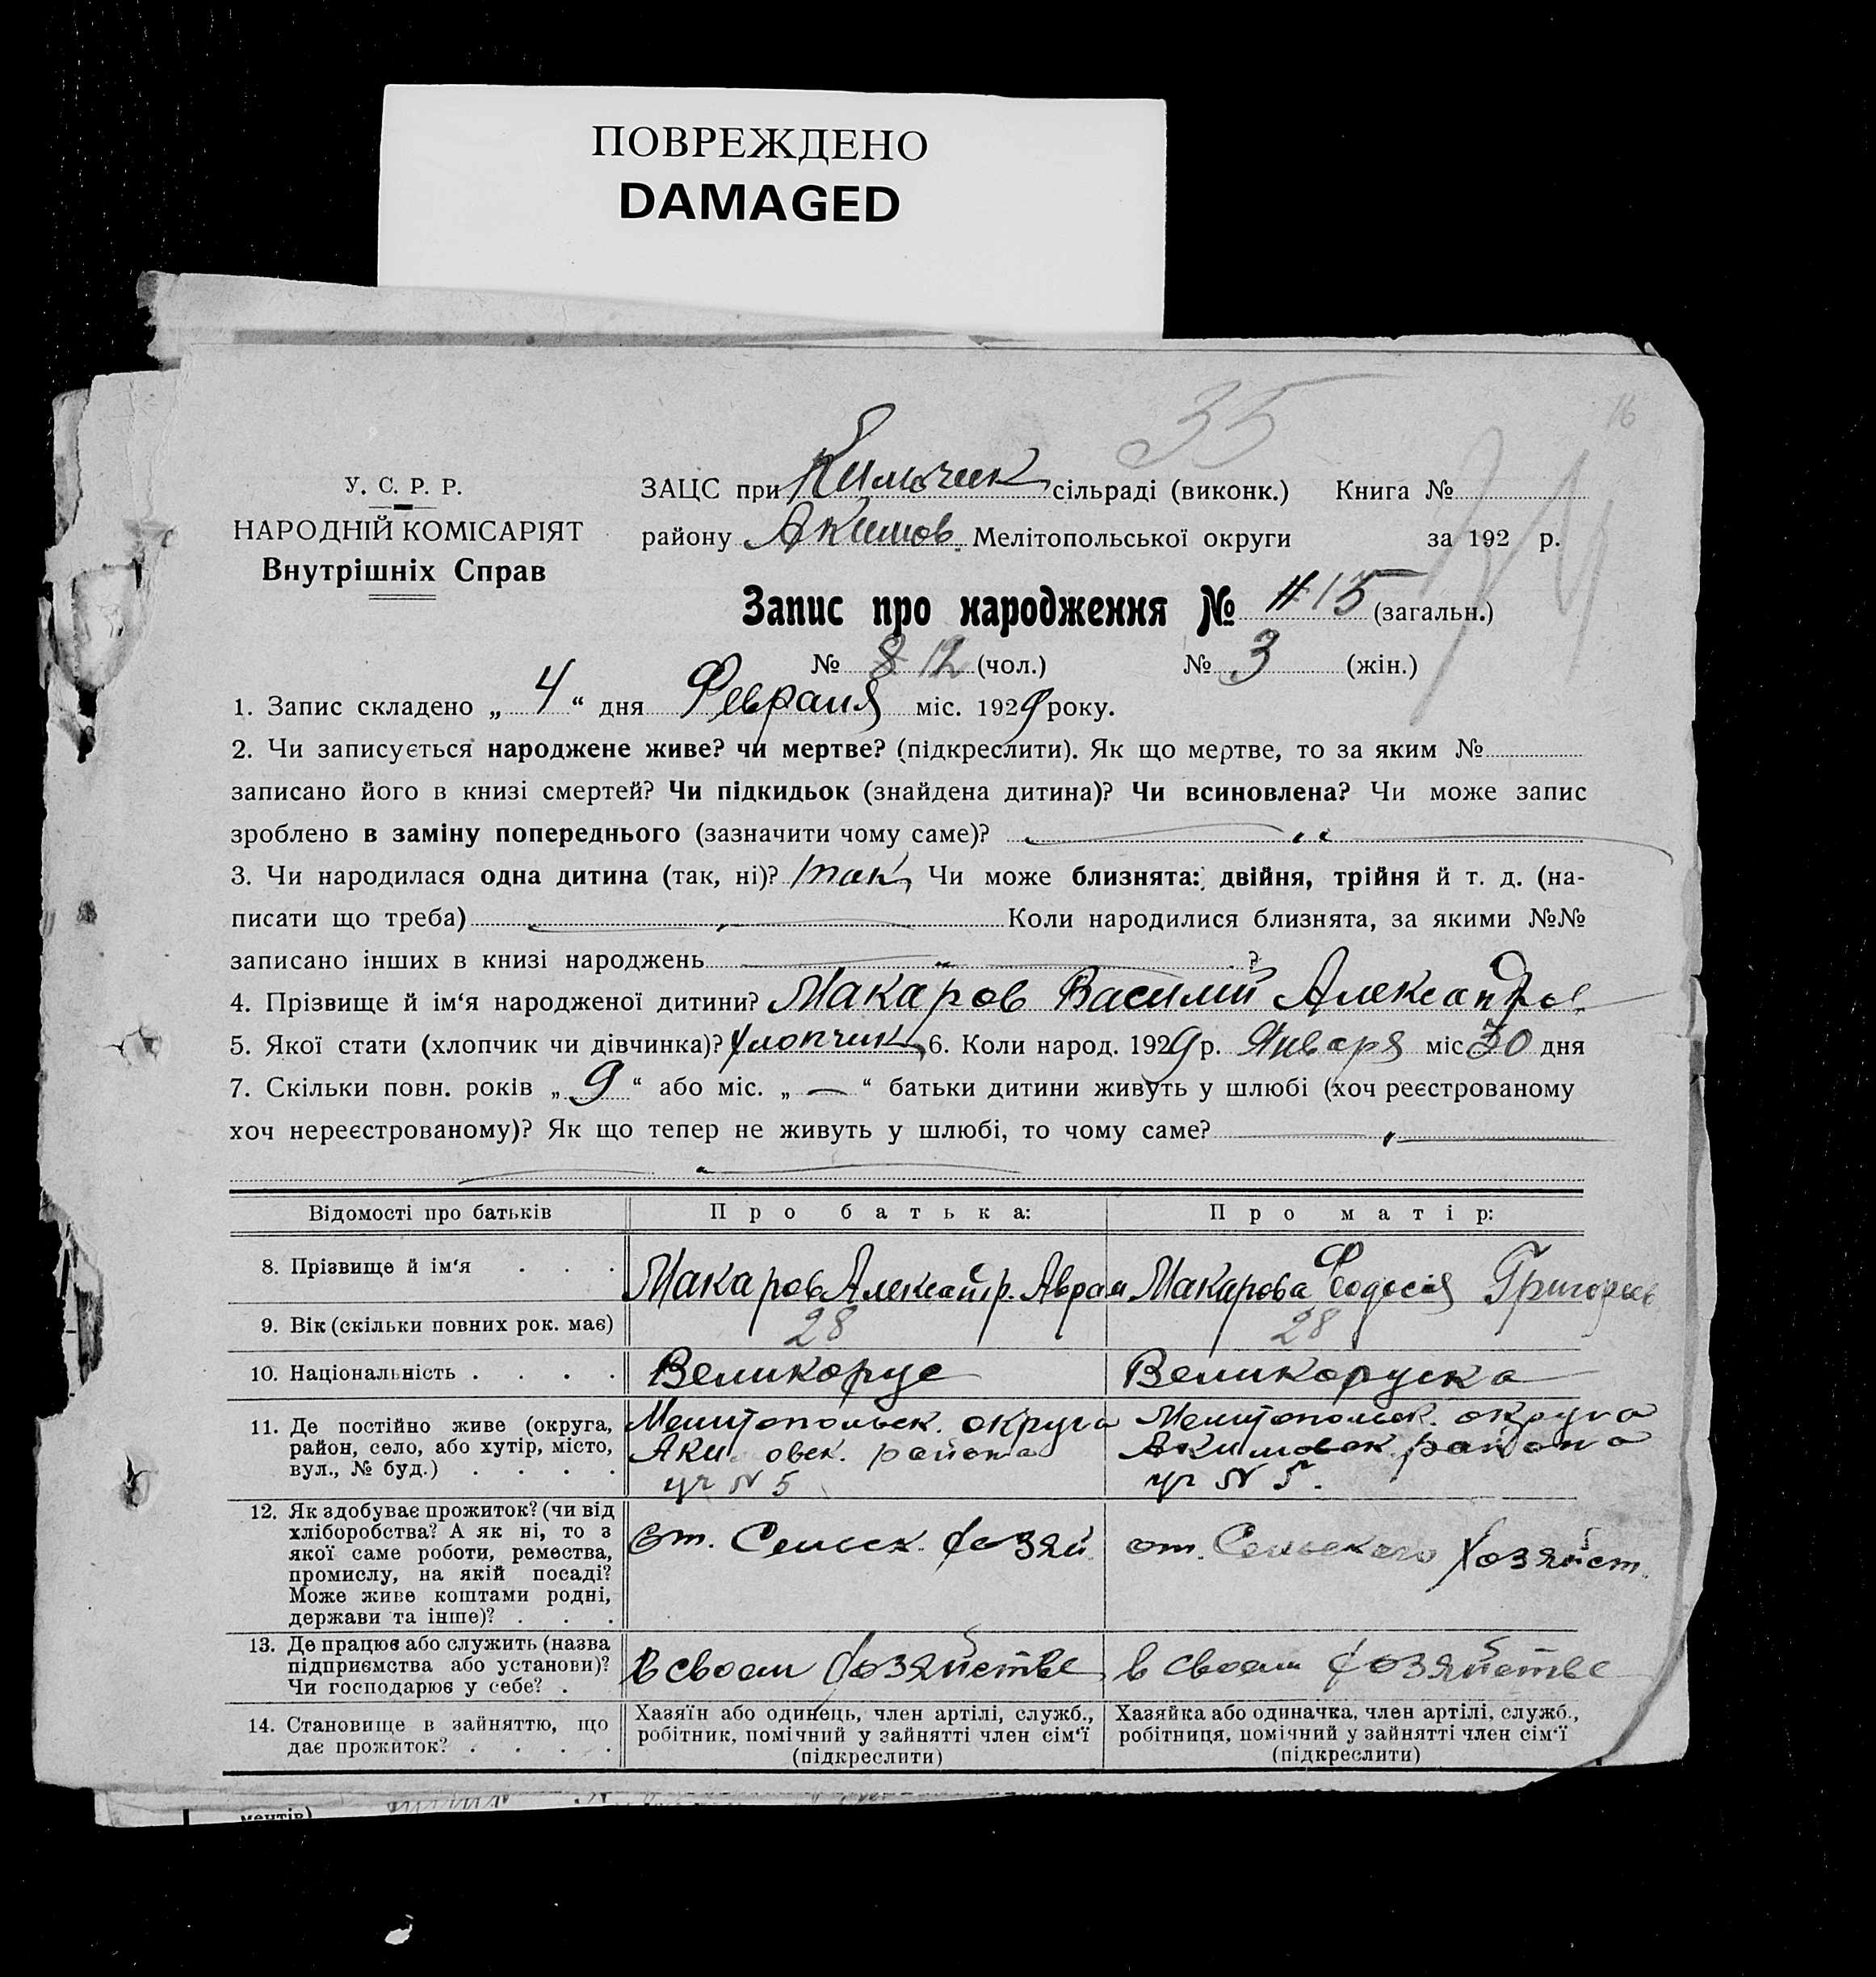 ПОВРЕЖДЕНО
DAMAGED
35
16
У. С. Р. Р.
НАРОДНІЙ КОМІСАРІЯТ
Внутрішніх Справ
ЗАЦС при сільраді (виконк.) Книга №
району Акимов. Мелітопольської округи за 192 р.
Запис про народження № 15 (загальн.)
№ 8 12 (чол.) № 3 (жін.)
1. Запис складено „ 4 “ дня Февраля міс. 1929 року.
2. Чи записується народжене живе? чи мертве? (підкреслити). Як що мертве, то за яким №
записано його в книзі смертей? Чи підкидьок (знайдена дитина)? Чи всиновлена? Чи може запис
зроблено в заміну попереднього (зазначити чому саме)?
3. Чи народилася одна дитина (так, ні)? так Чи може близнята: двійня, трійня й т. д. (на-
писати що треба) Коли народилися близнята, за якими №№
записано інших в книзі народжень ?
4. Прізвище й ім‘я народженої дитини? Макаров Василий Александров.
5. Якої стати (хлопчик чи дівчинка)? хлопчик 6. Коли народ. 1929 р. Января міс 30 дня
7. Скільки повн. років „ 9 “ або міс. „ — “ батьки дитини живуть у шлюбі (хоч реєстрованому
хоч нереєстрованому)? Як що тепер не живуть у шлюбі, то чому саме?
Відомості про батьків Про батька: Про матір:
8. Прізвище й ім‘я . . . Макаров Александр. Аврам Макарова Феодосия Григорьев
9. Вік (скільки повних рок. має) 28 28
10. Національність . . . . Великорус Великоруска
11. Де постійно живе (округа,
район, село, або хутір, місто,
вул., № буд.) . . . .
Мелитопольск. округа
Аки овск. района
уч N 5
Мелитопольск. округа
Акимовск. района
уч N 5.
12. Як здобуває прожиток? (чи від
хліборобства? А як ні, то з
якої саме роботи, ремества,
промислу, на якій посаді?
Може живе коштами родні,
держави та інше)? . . .
от. Сельск. хозяй.
от. Сельского хозяйст.
13. Де працює або служить (назва
підприємства або установи)?
Чи господарює у себе? .
в своем хозяйстве
в своем хозяйстве
14. Становище в зайняттю, що
дає прожиток? . . . .
Хазяїн або одинець, член артілі, служб.,
робітник, помічний у зайнятті член сім‘ї
(підкреслити)
Хазяйка або одиначка, член артілі, служб.,
робітниця, помічний у зайнятті член сім‘ї
(підкреслити)
ментів)